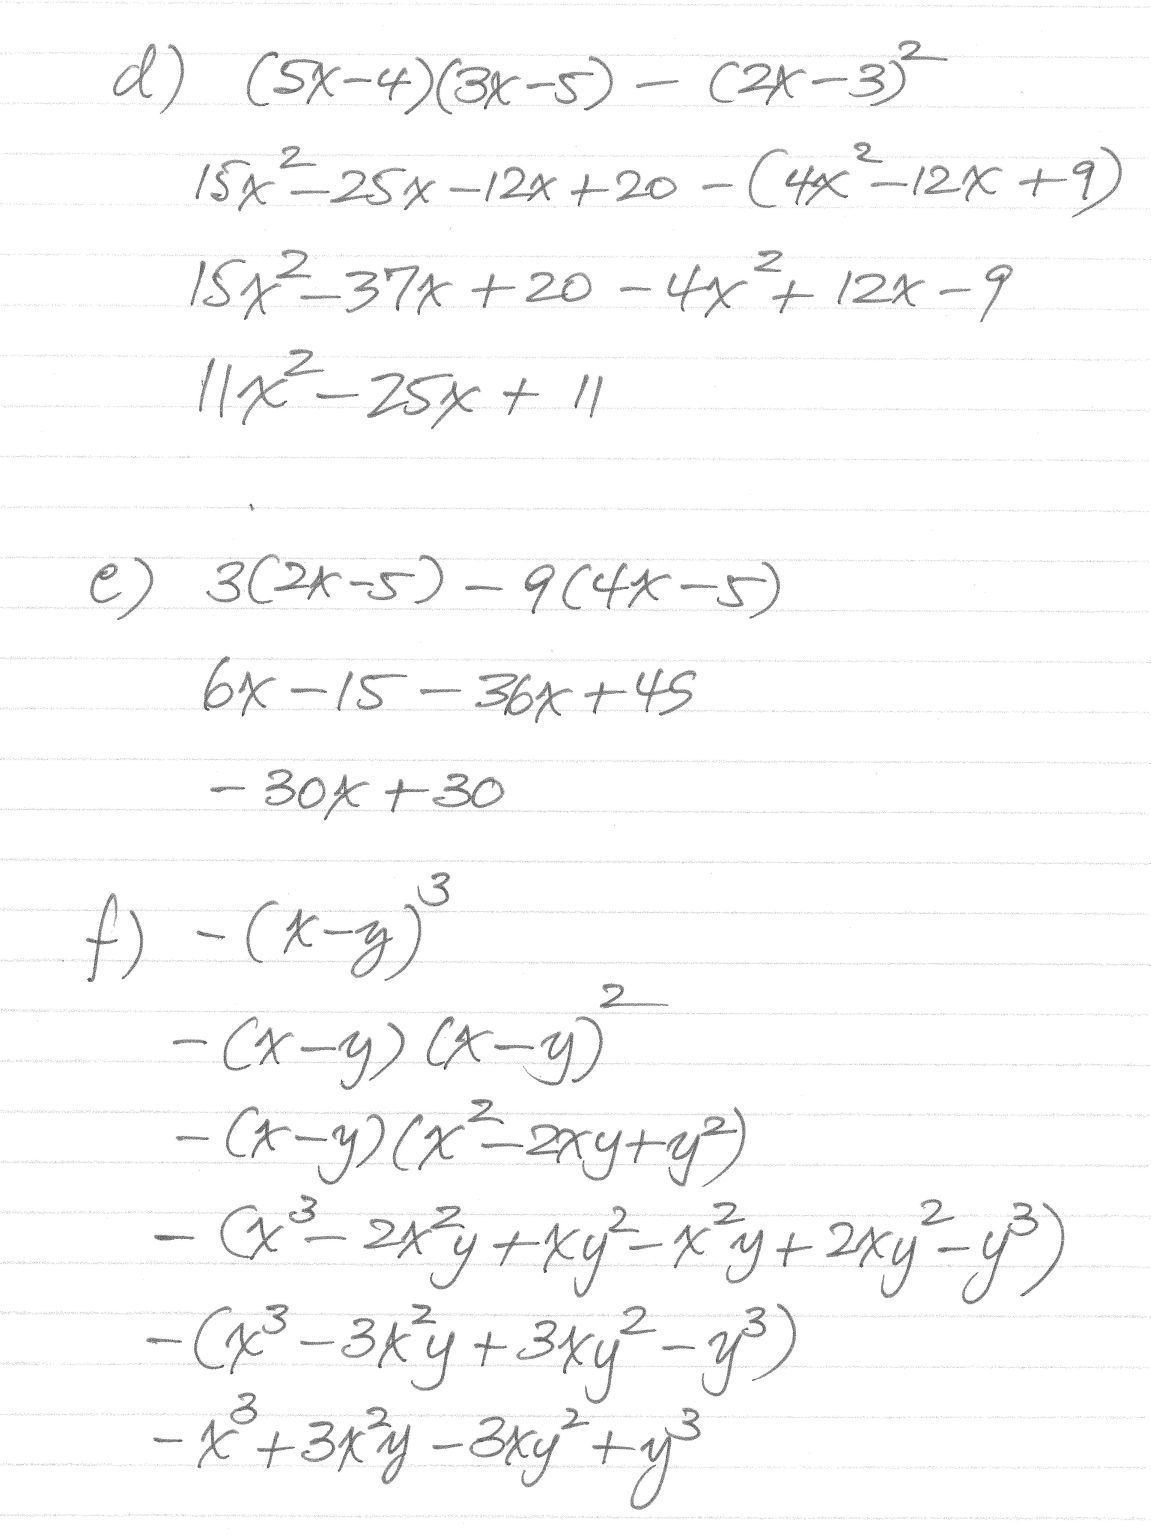 d) (5x-4)(3x-5) - (2x-3)²
15x² - 25x - 12x + 20 - (4x² - 12x + 9)
15x² - 37x + 20 - 4x² + 12x - 9
11x² - 25x + 11
e) 3(2x-5) - 9(4x-5)
6x - 15 - 36x + 45
- 30x + 30
f) - (x-y)³
- (x-y) (x-y)²
- (x-y)(x² - 2xy + y²)
- (x³ - 2x²y + xy² - x²y + 2xy² - y³)
- (x³ - 3x²y + 3xy² - y³)
- x³ + 3x²y - 3xy² + y³